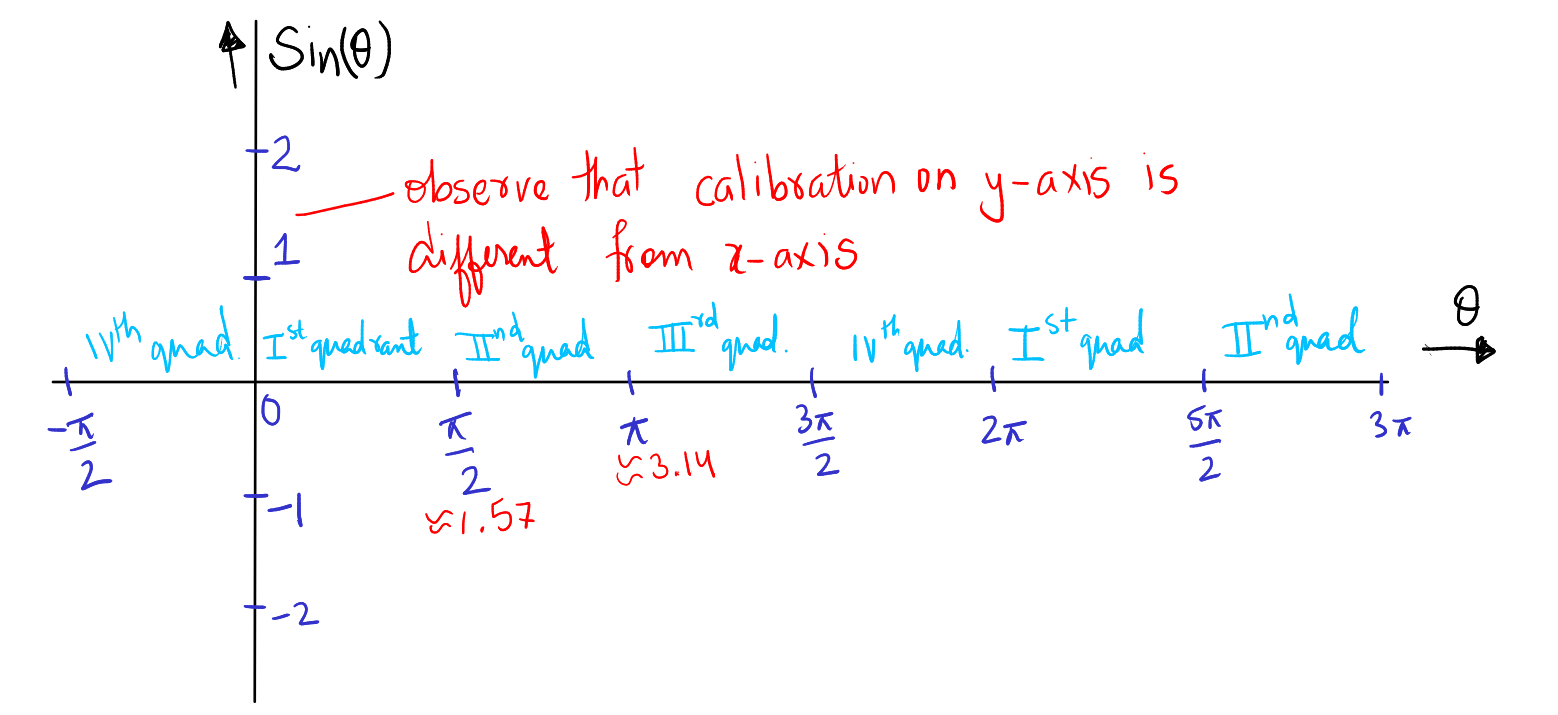 Sin(θ)
2
observe that calibration on y-axis is
1
different from x-axis
θ
IVth quad. Ist quadrant IInd quad IIIrd quad. IVth quad. Ist quad IInd quad
-π/2 0 π/2 π 3π/2 2π 5π/2 3π
≈3.14
-1
≈1.57
-2